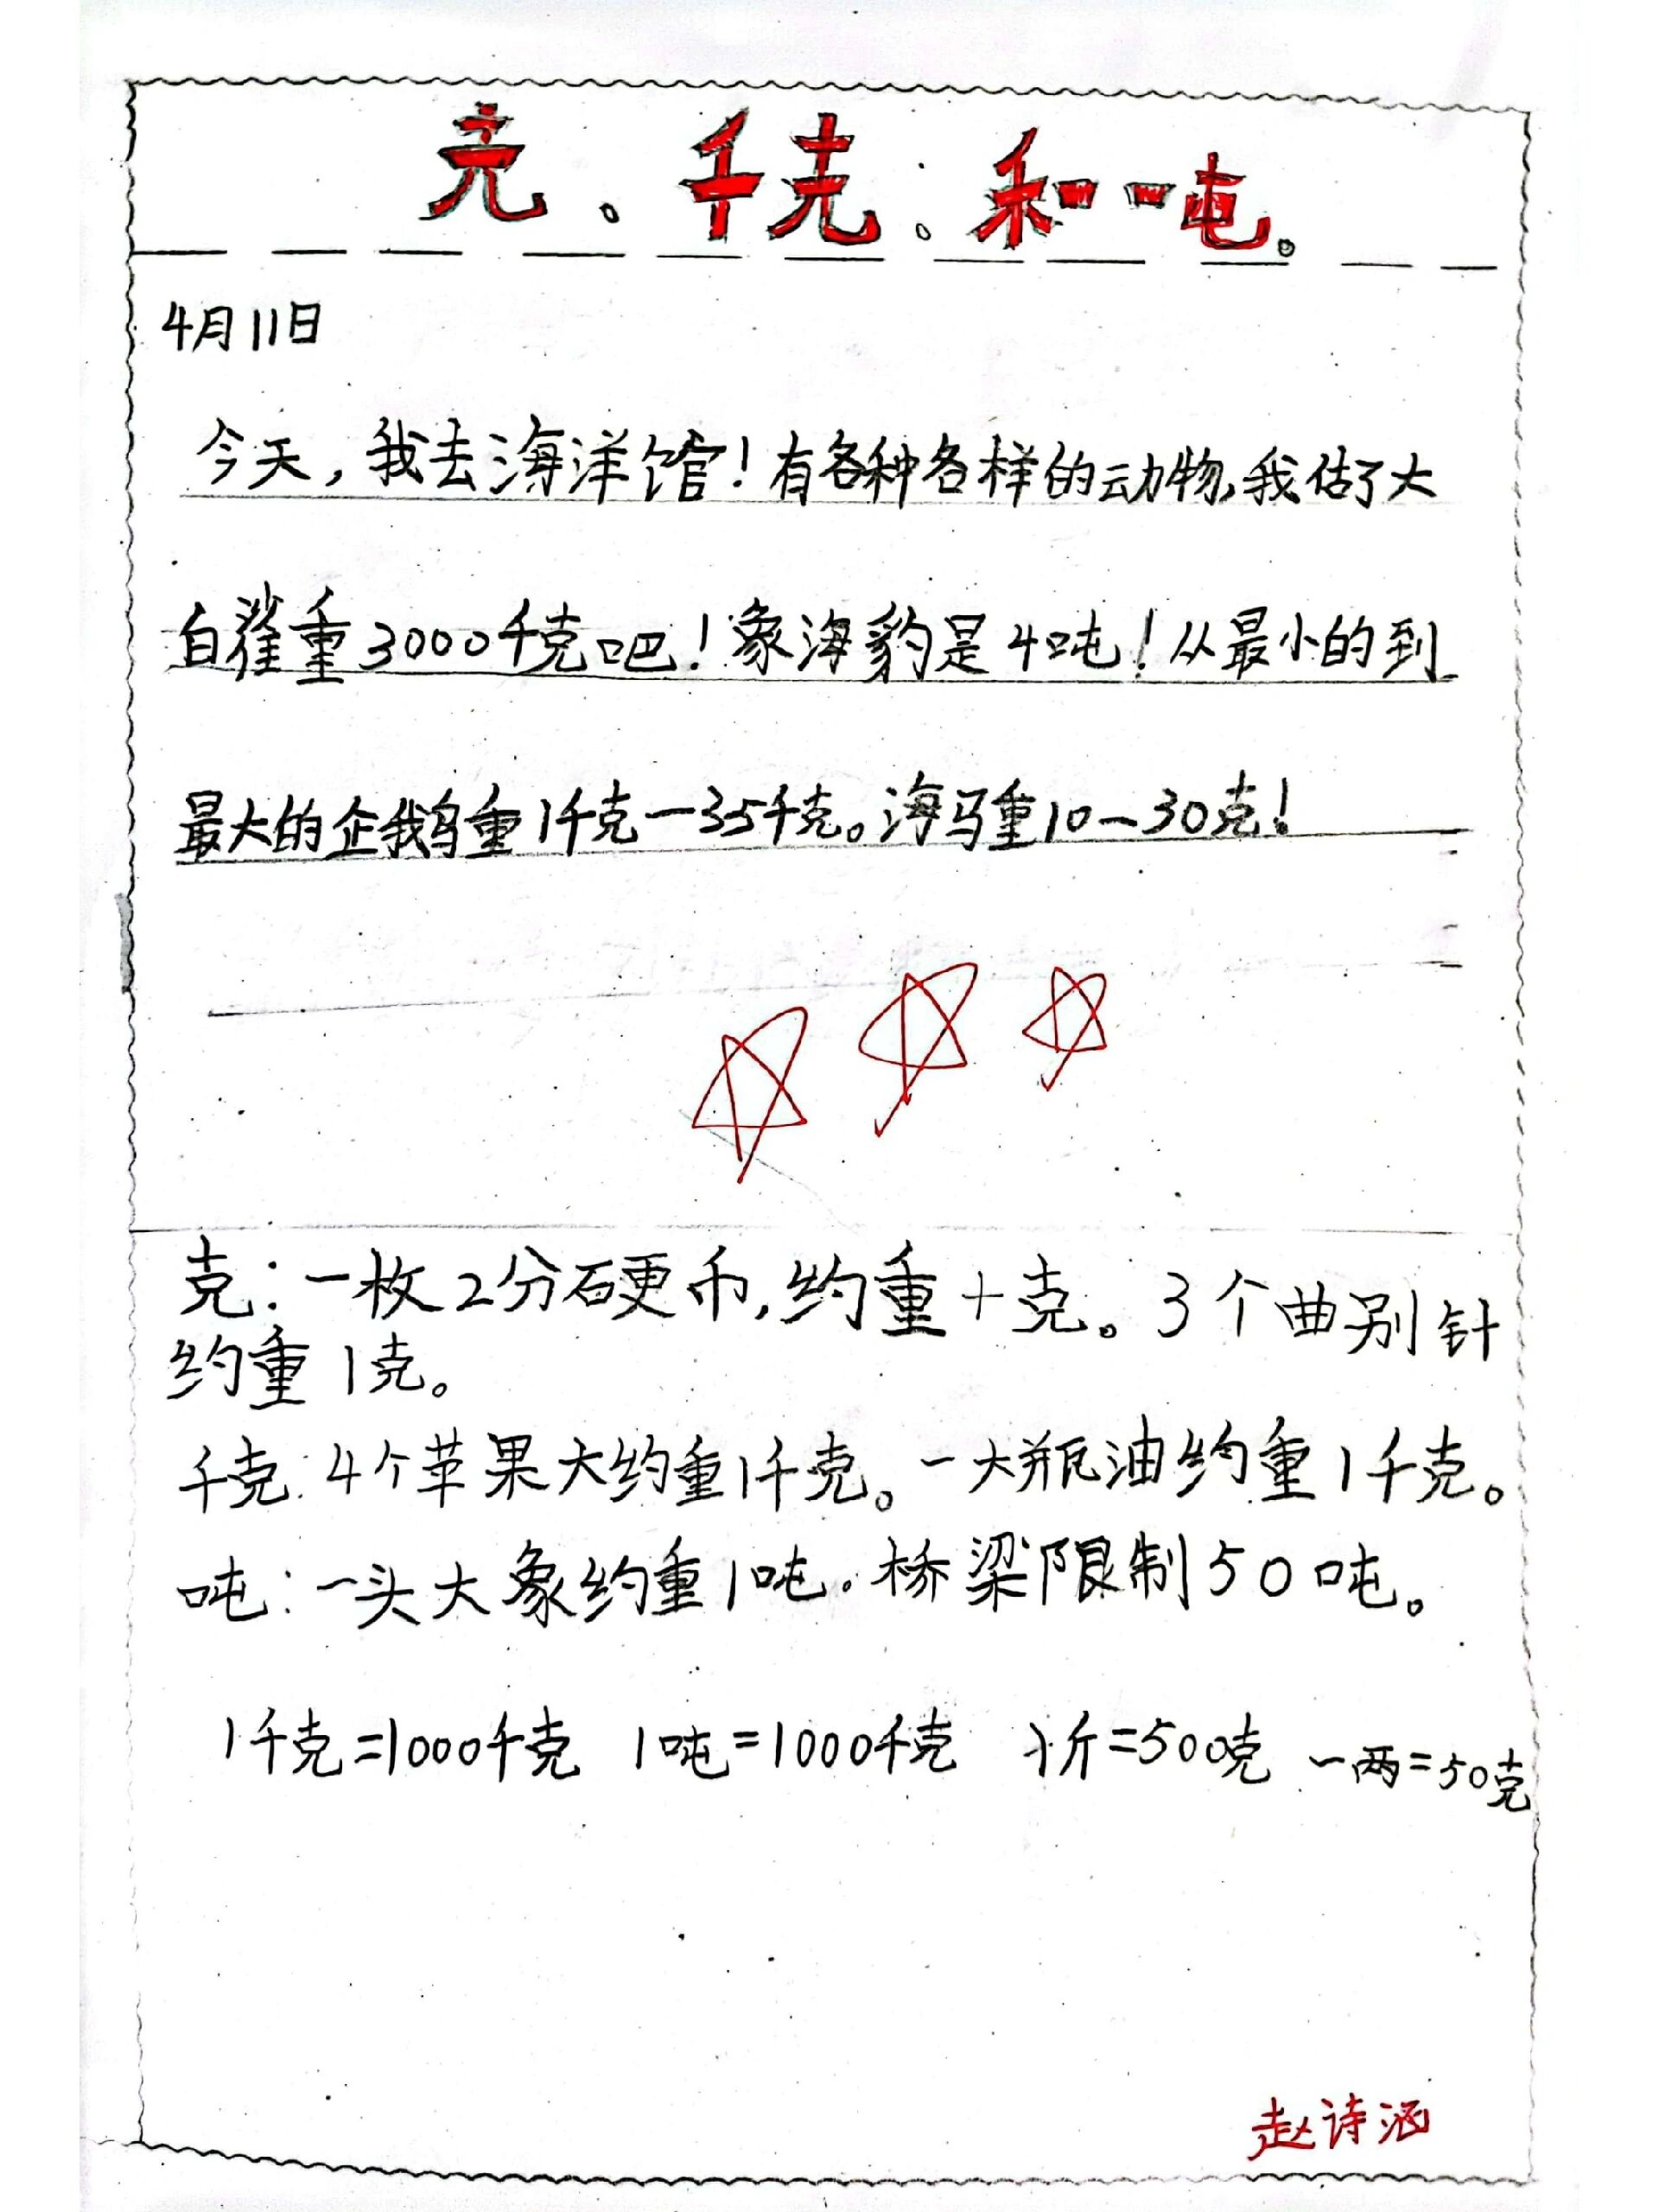 克、千克、和吨。
4月11日
今天，我去海洋馆！有各种各样的动物，我估了大
白鲨重3000千克吧！象海豹是4吨！从最小的到
最大的企鹅重1千克一35千克。海马重10一30克！
克：一枚2分硬币，约重十克。3个曲别针
约重1克。
千克：4个苹果大约重1千克。一大瓶油约重1千克。
吨：一头大象约重1吨。桥梁限制50吨。
1千克=1000千克 1吨=1000千克 1斤=500克 一两=50克
赵诗涵